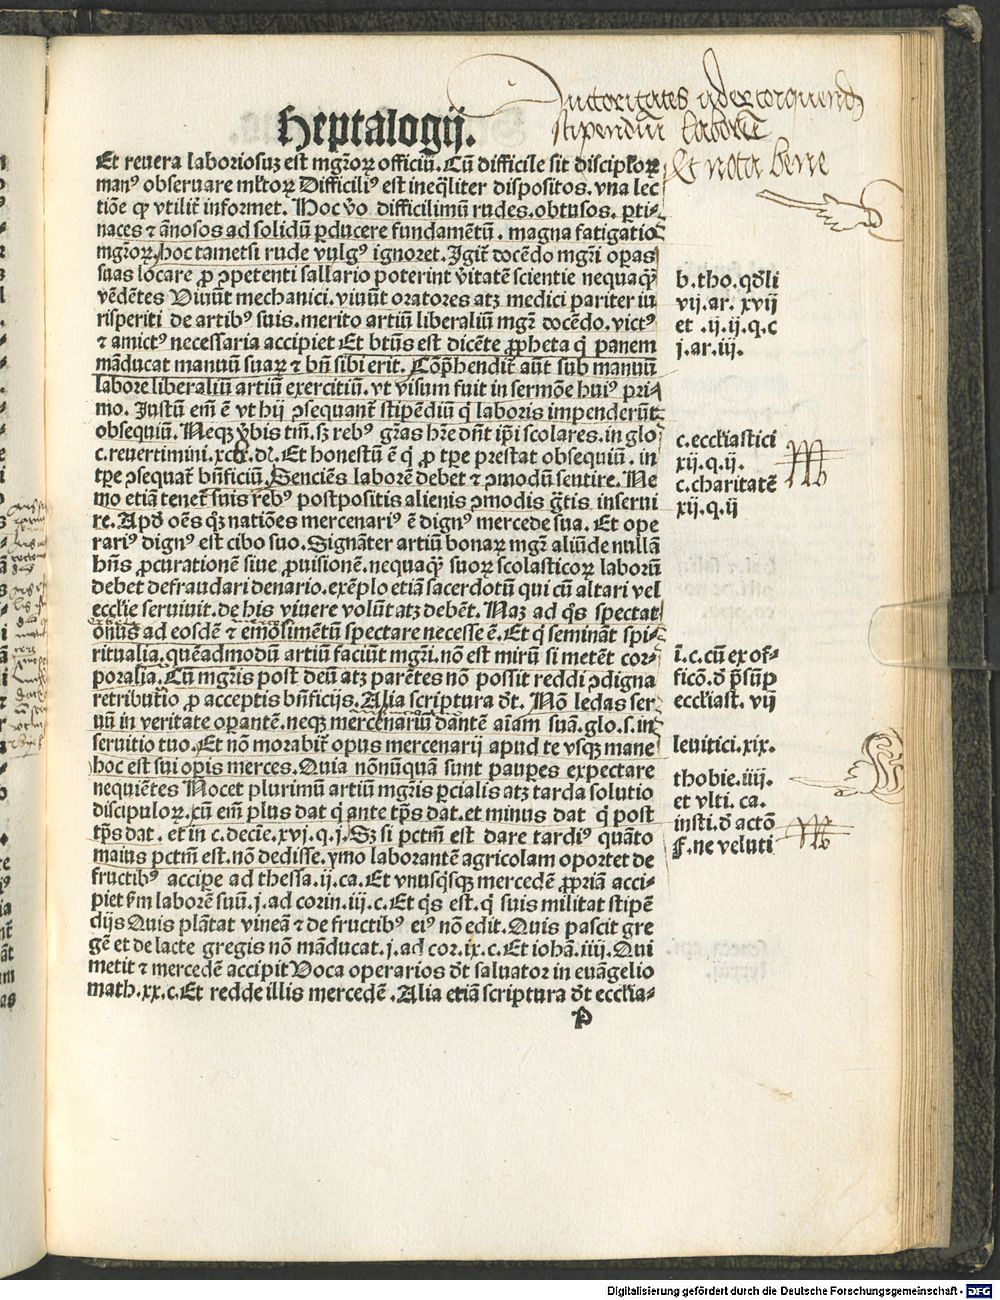 Heptalogij.
Et reuera laboriosuʒ est mgr̃oꝝ officiũ. Cũ difficile sit discipl'oꝝ
man⁹ obseruare ml'toꝝ Difficili⁹ est ineq̃liter dispositos. vna lec
tiõe qꝫ vtilit̃ informet. Hoc v̊o difficilimũ rudes. obtusos. ꝑti⸗
naces ⁊ ãnosos ad solidũ ꝑducere fundamẽtũ. magna fatigatio
mgr̃oꝝ. hoc tametsi rude vulg⁹ ignoret. Igit̃ docẽdo mgr̃i oꝑas
suas locare ꝓ ꝯpetenti sallario poterint v̊itatẽ scientie nequaq̃ꝫ
vẽdẽtes Viuũt mechanici. viuũt oratores atꝫ medici pariter iu
risperiti de artib⁹ suis. merito artiũ liberaliũ mgr̃ docẽdo. vict⁹
⁊ amict⁹ necessaria accipiet Et btũs est dicẽte ꝓpheta q̇ panem
mãducat manuũ suaꝝ ⁊ bñ sibi erit. Cõp̃hendit̃ aũt sub manuũ
labore liberaliũ artiũ exercitiũ. vt visum fuit in sermõe hui⁹ pri⸗
mo. Justũ em̃ ẽ vt hij ꝯsequant̃ stipẽdiũ q̇ laboris impenderũt
obsequiũ. Neqꝫ v̊bis tm̃. sꝫ reb⁹ gr̃as hr̃e dñt ip̃i scolares. in glo
c. reuertimini. xcij. dĩ. Et honestũ ẽ q̇ ꝓ tꝑe prestat obsequiũ. in
tꝑe ꝯsequat̃ bñficiũ. Senciẽs laborẽ debet ⁊ ꝯmodũ sentire. Ne
mo etiã tenet̃ suis reb⁹ postpositis alienis ꝯmodis gr̃tis inserui
re. Apd̃ oẽs qꝫ natiões mercenari⁹ ẽ dign⁹ mercede sua. Et ope
rari⁹ dign⁹ est cibo suo. Signãter artiũ bonaꝝ mgr̃ aliũde nullã
hñs ꝓcurationẽ siue ꝓuisionẽ. nequaq̃ꝫ suoꝝ scolasticoꝝ laborũ
debet defraudari denario. exẽplo etiã sacerdotũ qui cũ altari vel
eccl'ie seruiunt. de his viuere volũt atꝫ debẽt. Naꝫ ad q̃s spectat
õnus ad eosdẽ ⁊ emõlimẽtũ spectare necesse ẽ. Et q̇ seminãt spi⸗
ritualia. quẽadmodũ artiũ faciũt mgr̃i. nõ est mirũ si metẽt cor⸗
poralia. Cũ mgr̃is post deũ atꝫ parẽtes nõ possit reddi ꝯdigna
retributio ꝓ acceptis bñficijs. Alia scriptura dt̃. Nõ ledas ser
uũ in veritate oꝑantẽ. neqꝫ mercenariũ dantẽ aĩam suã. glo. s. in
seruitio tuo. Et nõ morabit̃ opus mercenarij apud te vsqꝫ mane
hoc est sui oꝑis merces. Quia nõnũquã sunt pauꝑes expectare
nequiẽtes Nocet plurimũ artiũ mgr̃is ꝑcialis atꝫ tarda solutio
discipuloꝝ. cũ em̃ plus dat q̇ ante tp̃s dat. et minus dat q̇ post
tp̃s dat. et in c. decie. xvj. q. j. Sꝫ si pctm̃ est dare tardi⁹ quãto
maius pctm̃ est. nõ dedisse. ymo laborantẽ agricolam oportet de
fructib⁹ accipe ad thessa. ij. ca. Et vnusq̃sqꝫ mercedẽ ꝓpriã acci⸗
piet s'm laborẽ suũ. j. ad corin. iij. c. Et q̃s est. q̇ suis militat stipẽ
dijs Quis plãtat vineã ⁊ de fructib⁹ ei⁹ nõ edit. Quis pascit gre
gẽ et de lacte gregis nõ mãducat. j. ad cor. ix. c. Et iohã. iiij. Qui
metit ⁊ mercedẽ accipit Voca operarios dt̃ saluator in euãgelio
math. xx. c. Et redde illis mercedẽ. Alia etiã scriptura dt̃ eccl'ia⸗
P
stipendium
Et nota bene
b. tho. qõli
vij. ar. xvij
et .ij. ij. q. c
j. ar. iij.
c. eccl'iastici
xij. q. ij.
c. charitatẽ
xij. q. ij
ĩ. c. cũ ex of⸗
ficõ. d̊ p̃sũꝑ
eccl'iast. vij
leuitici. xix.
thobie. iiij.
et vlti. ca.
insti. d̊ actõ
§. ne veluti
Digitalisierung gefördert durch die Deutsche Forschungsgemeinschaft - DFG